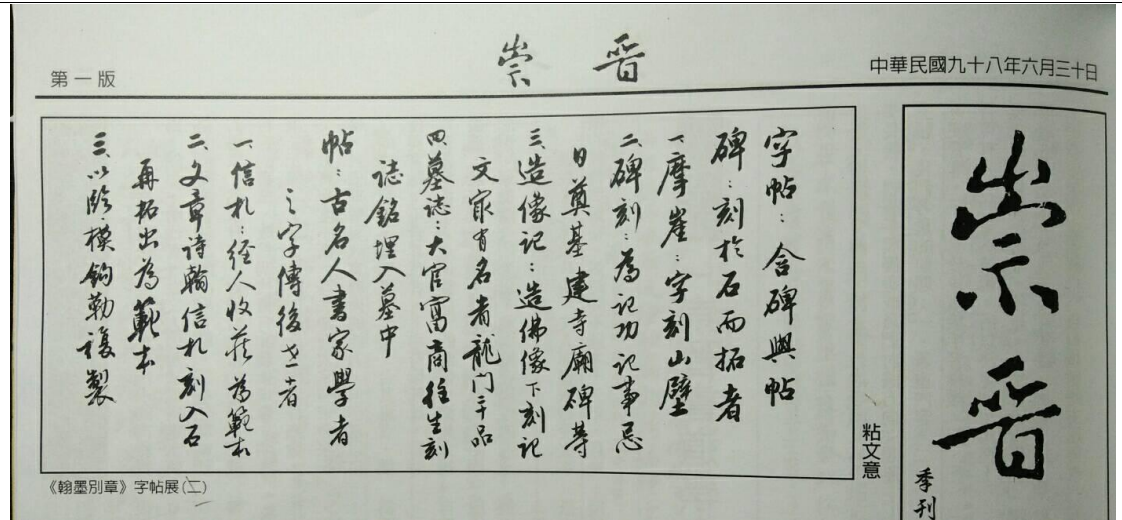 第一版
崇晋
中華民國九十八年六月三十日
崇晋
季刊
字帖：含碑與帖
碑：刻於石而拓者
一、摩崖：字刻山壁
二、碑刻：為記功記事忌
日奠基建寺廟碑等
三、造像記：造佛像下刻記
文最有名者龍门二十品
四、墓誌：大官富商往生刻
誌銘埋入墓中
帖：古名人書家學者
之字傳後世者
一、信札：經人收藏為範本
二、文章詩翰信札刻入石
再拓出為範本
三、以臨摸鉤勒複製
粘文意
《翰墨別章》字帖展(二)